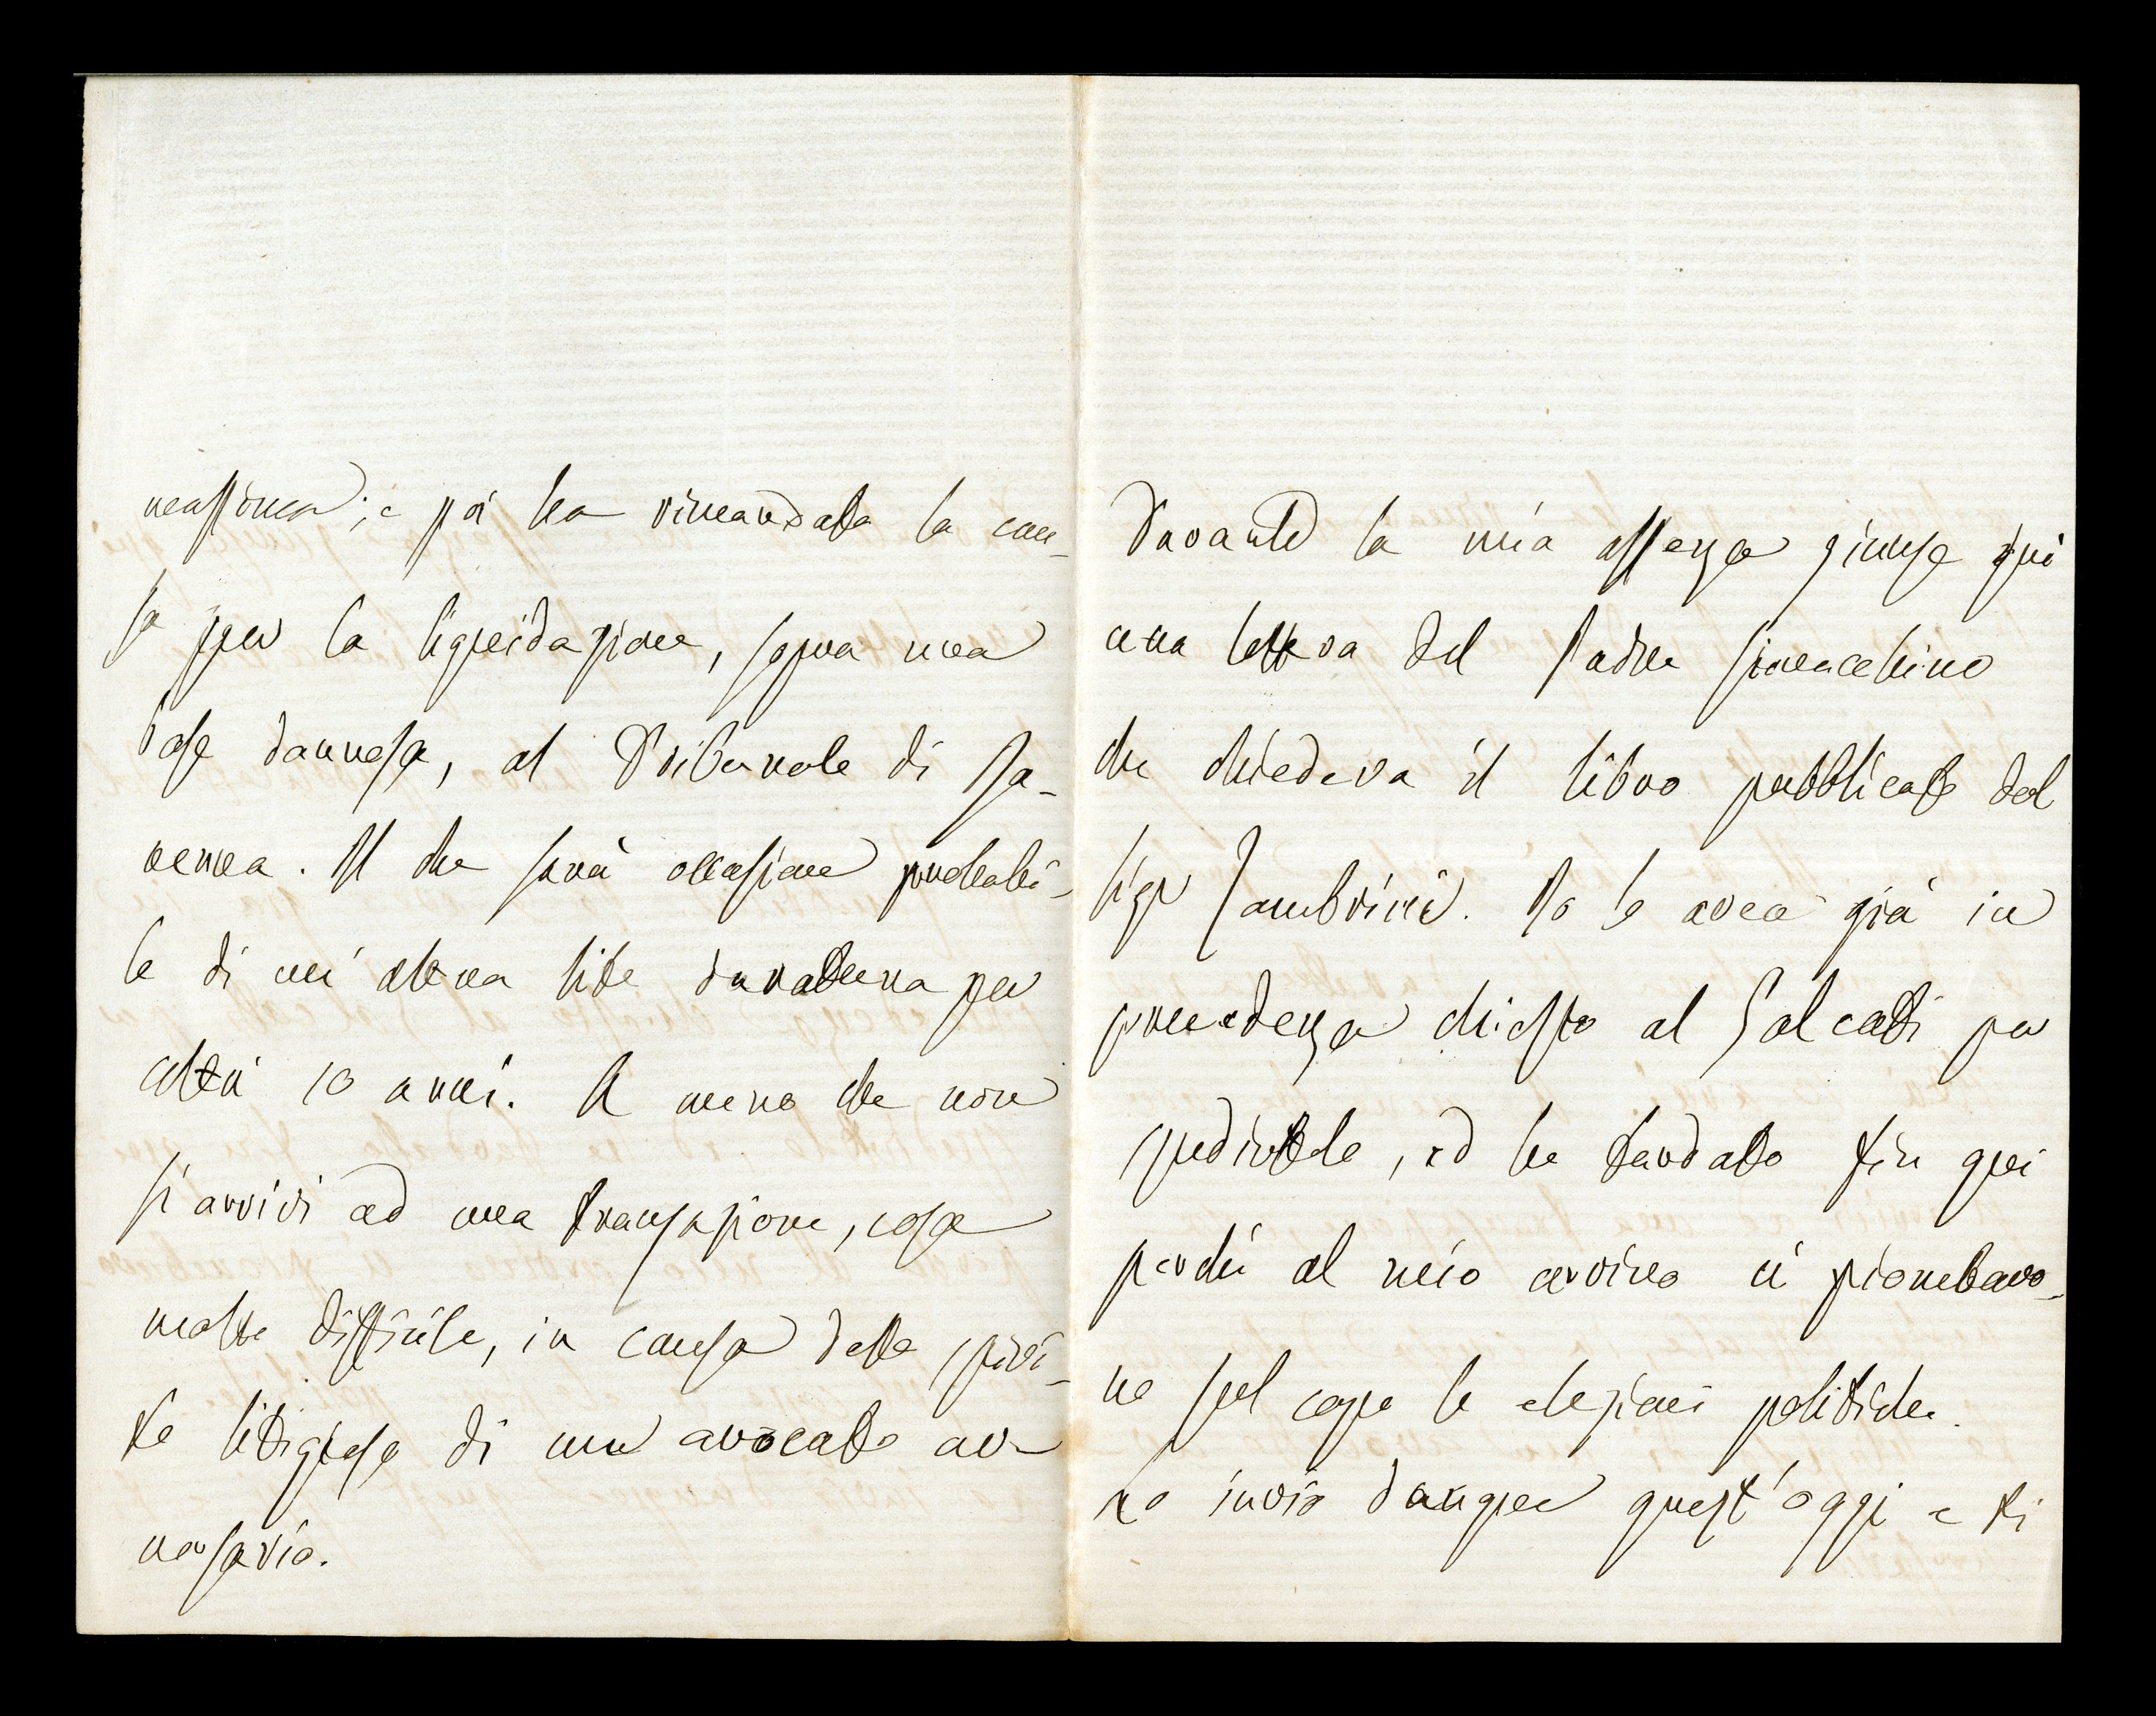 massima; e poi ha rimandato la cau-
sa per la liquidazione, sopra una
base dannosa, al Tribunale di Ra-
venna. Il che sarà occasione probabi-
le di un'altra lite duratura per
altri 10 anni. A meno che non
si arrivi ad una transazione, cosa
molto difficile, in causa dello spiri-
to litigioso di un avvocato av-
versario.
Durante la mia assenza giunse qui
una lettera del Padre
che chiedeva il libro pubblicato dal
Sigr Zambrini. Io lo avea già in
precedenza chiesto al Salcati per
spedirtelo, ed ho tardato fin qui
perché al mio arrivo ci piombaro-
no sul capo le elezioni politiche.
Lo invio dunque quest'oggi e ti